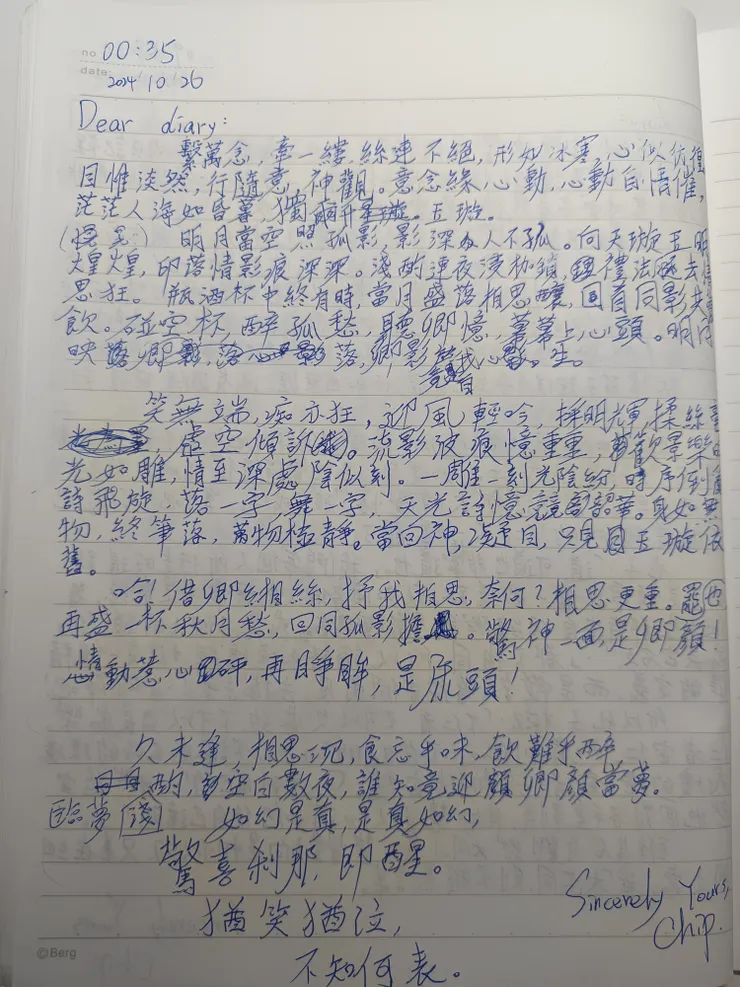 no. 00:35
date. 2024 10 26
Dear diary:
繫萬念,牽一縷,絲連不絕,形如冰寒,心似彷徨
目惟淡然,行隨意,神觀。意念緣心動,心動自情催,
茫茫人海如昏暮,獨 五璇。
明月當空照孤影,影深 人不孤。向天璇五明
煌煌,印落情影痕深深。淺酌連夜 枷鎖, 禮法 去
思狂。瓶酒杯中終有時,當月盛落相思釀,回首同影共
飲。碰空杯,醉孤愁,聽卿憶,幕幕上心頭。明月
映 落,卿影 我心 生。
笑無端,痴亦狂,迎風輕吟,擇明輝,揉絲
虛空傾訴 。流影波痕憶重重, 歡景樂
光如雕,情至深處陰似刻。一雕一刻光陰紛,時序倒
詩飛旋,落一字,舞一字,天光詩憶競韶華。身如無
物,終筆落,萬物極靜。當回神,凝目,只見 五璇依
舊。
哈!借卿 相絲,抒我相思,奈何?相思更重。罷也
再盛一杯秋月愁,回同孤影 。驚神一面,是卿顏!
情動惹心砰,再睜眸,是 頭!
久未逢,相思沉,食忘乎味,飲難乎醉
酌,空白數夜,誰知竟迎 卿顏當夢。
臨夢 淺 如幻是真,是真如幻,
驚喜剎那,即醒。
猶笑猶泣,
不知何表。
Sincerely Yours,
Chip.
©Berg